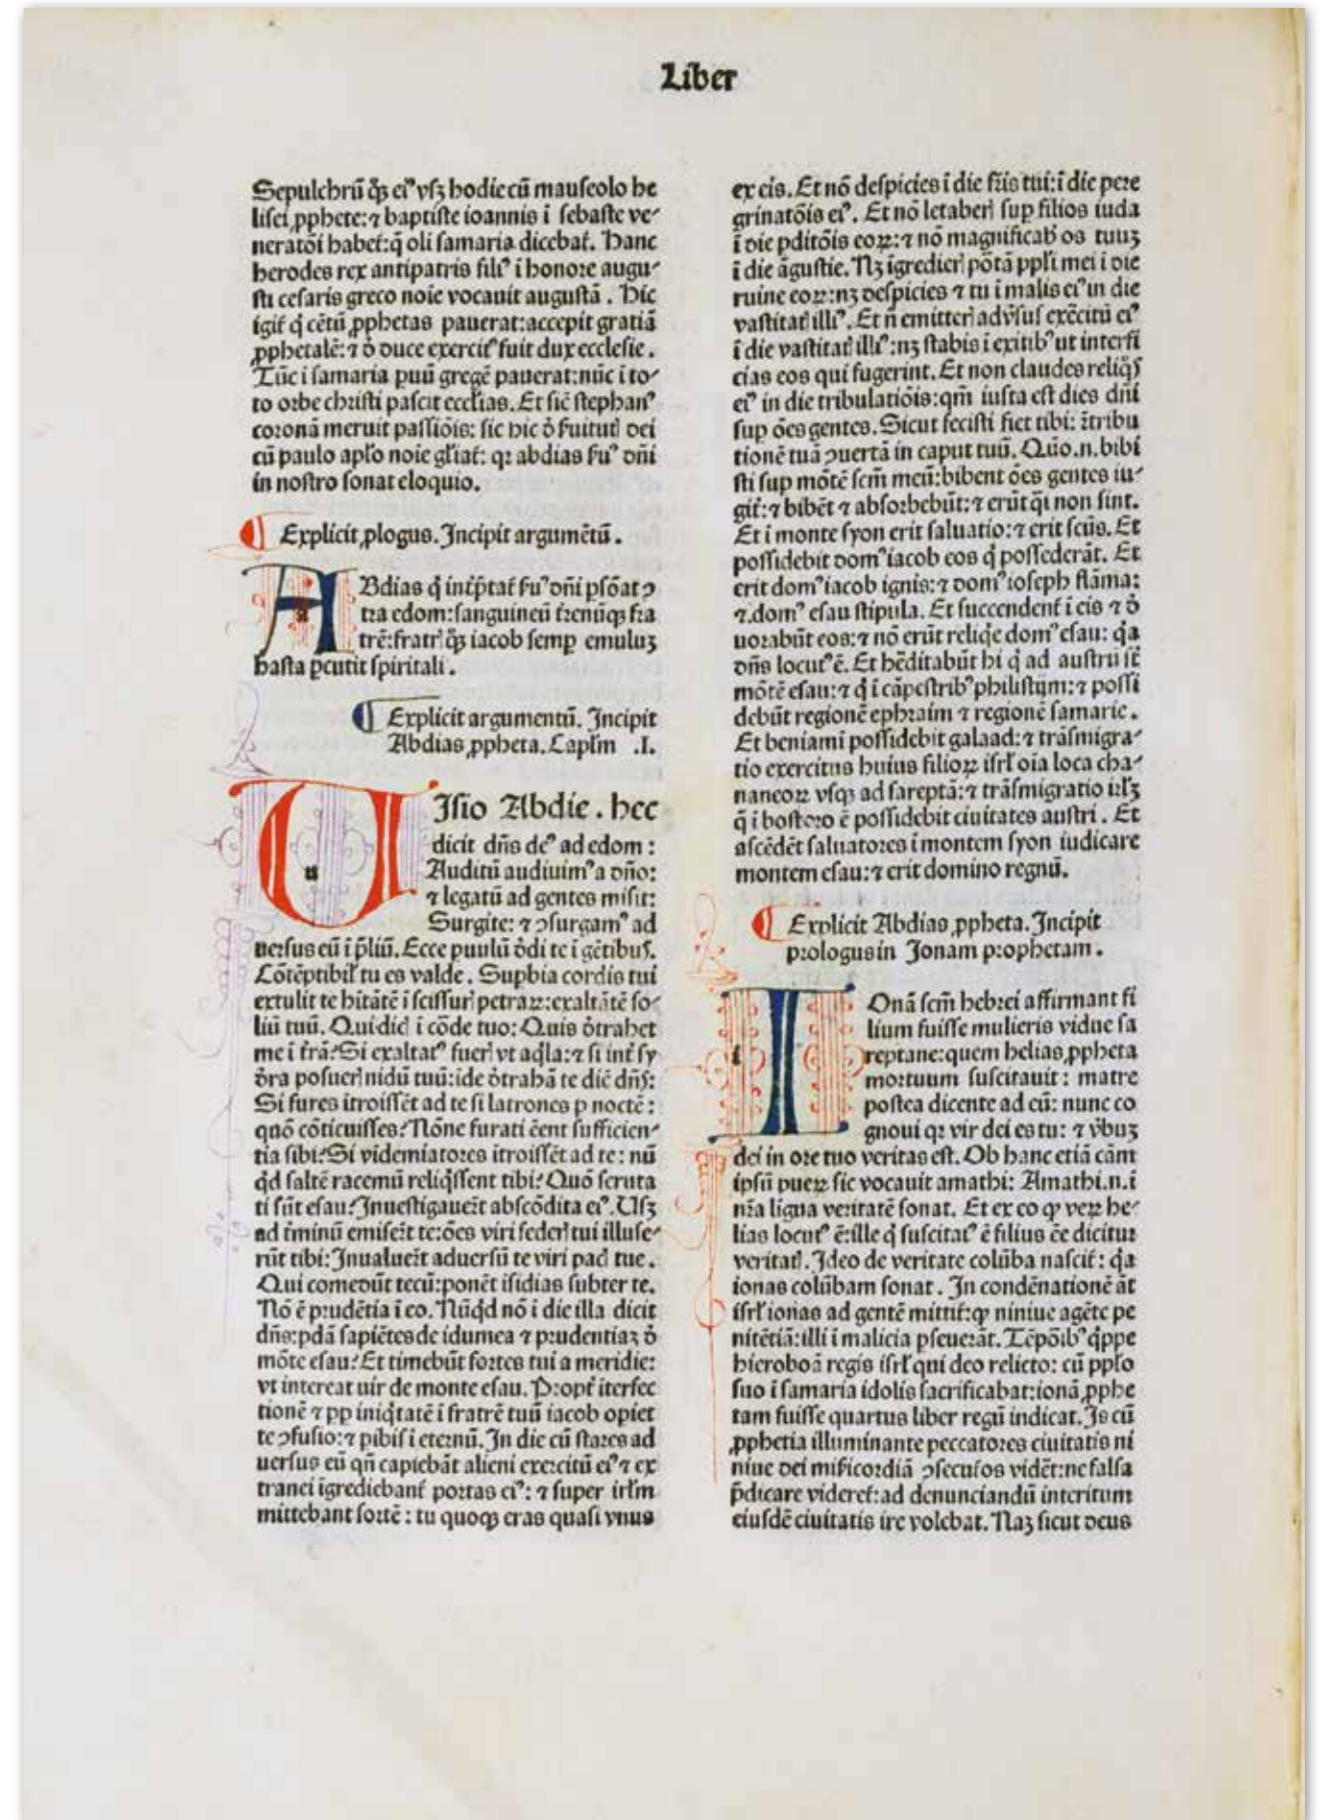 Liber
Sepulchrũ q̃ꝫ eiꝰ vſꝫ hodie cũ mauſeolo he
liſei ꝓphete: ⁊ baptiſte ioannis ĩ ſebaſte ve⸗
neratõi habet̃: q̃ oli ſamaria dicebat̃. Hanc
herodes rex antipatris filiꝰ ĩ honoꝛe augu⸗
ſti ceſaris greco noie vocauit auguſtã . Hic
igit̃ q̇ cẽtũ ꝓphetas pauerat: accepit gratiã
ꝓphetalẽ: ⁊ ð duce exercitꝰ fuit dux eccleſie .
Tũc i ſamaria puũ gregẽ pauerat: nũc ĩ to⸗
to oꝛbe chꝛiſti paſcit eccĺias. Et ſic̃ ſtephanꝰ
coꝛonã meruit paſſiõis: ſic hic ð ſuitut̃ dei
cũ paulo apĺo noie gĺiat̃: qꝛ abdias ſuꝰ dñi
in noſtro ſonat eloquio.
Explicit ꝓlogus. Incipit argumẽtũ .
ABdias q̇ int̃p̃tat̃ ſuꝰ dñi pſõat ꝯ
tra edom: ſanguineũ t̃renũqꝫ fra
trẽ: fratrꝭ qꝫ iacob ſemp emuluꝫ
haſta ꝑcutit ſpiritali .
Explicit argumentũ. Incipit
Abdias ꝓpheta. Capĺm .I.
VIſio Abdie . hec
dicit dñs deꝰ ad edom :
Auditũ audiuimꝰ a dño:
⁊ legatũ ad gentes miſit:
Surgite: ⁊ ꝯſurgamꝰ ad
uerſus eũ ĩ p̃liũ. Ecce puulũ ðdi te ĩ gẽtibuſ.
Cõtẽptibiĺ tu es valde . Supbia cordis tui
extulit te hĩtãtẽ ĩ ſciſſurꝭ petraꝝ: exaltãtẽ ſo⸗
liũ tuũ. Qui dicꝭ ĩ coꝛde tuo: Quis ðtrahet
me ĩ t̃rã? Si exaltatꝰ fuerꝭ vt aq̇la: ⁊ ſi int̃ ſy
ðra poſuerꝭ nidũ tuũ: ide ðtrahã te dic̃ dñſ:
Si fures ĩtroiſſẽt ad te ſi latrones p noctẽ :
quõ cõticuiſſes? Nõne furati ẽent ſufficien⸗
tia ſibi? Si vĩdemiatoꝛes ĩtroiſſẽt ad te : nũ
q̇d ſaltẽ racemũ reliq̇ſſent tibi? Quõ ſcruta
ti ſũt eſau? Inueſtigauer̃t abſcõdita eiꝰ. Uſꝫ
ad t̃minũ emiſer̃t te: õẽs viri federꝭ tui illuſe⸗
rũt tibi: Inualuer̃t aduerſũ te viri pacꝭ tue .
Qui comedũt tecũ: ponẽt ĩſidias ſubter te.
Nõ ẽ pꝛudẽtia ĩ eo. Nũq̇d nõ ĩ die illa dicit
dñs: pdã ſapiẽtes de idumea ⁊ pꝛudentiaꝫ ð
mõte eſau? Et timebũt foꝛtes tui a meridie:
vt intereat uir de monte eſau. Pꝛopt̃ iterfec
tionẽ ⁊ pp iniq̇tatẽ ĩ fratrẽ tuũ iacob opiet
te ꝯfuſio: ⁊ pibiſ ĩ eteꝛnũ. In die cũ ſtares ad
uerſus eũ qñ capiebãt alieni exercitũ eiꝰ ⁊ ex
tranei ĩgrediebant̃ poꝛtas eiꝰ: ⁊ ſuper irĺm
mittebant ſoꝛtẽ : tu quoqꝫ eras quaſi vnus
ex eis. Et nõ deſpicies ĩ die fr̃is tui: ĩ die pere
grinatõis eiꝰ . Et nõ letaberꝭ ſup filios iuda
ĩ die pditõis eoꝝ: ⁊ nõ magnificabꝭ os tuuꝫ
ĩ die ãguſtie. Nꝫ ĩgredierꝭ poꝛtã ppĺi mei ĩ die
ruine eoꝝ: nꝫ deſpicies ⁊ tu ĩ malis eiꝰ in die
vaſtitatꝭ illiꝰ. Et ñ emitterꝭ adv̾ſuſ exẽcitũ eiꝰ
ĩ die vaſtitatꝭ illiꝰ: nꝫ ſtabis ĩ exitibꝰ ut interfi
cias eos qui fugerint. Et non claudes reliq̇ſ
eiꝰ in die tribulatiõis: qm̃ iuſta eſt dies dñi
ſup õẽs gentes. Sicut feciſti fiet tibi: r̃tribu
tionẽ tuã ꝯuertã in caput tuũ. Quõ.n.bibi
ſti ſup mõtẽ ſcm̃ meũ: bibent õẽs gentes iu⸗
git̃: ⁊ bibẽt ⁊ abſoꝛbebũt: ⁊ erũt q̃ſi non ſint.
Et ĩ monte ſyon erit ſaluatio: ⁊ erit ſcũs. Et
poſſidebit domꝰ iacob eos q̇ poſſederãt. Et
erit domꝰ iacob ignis: ⁊ domꝰ ioſeph flãma:
⁊ domꝰ eſau ſtipula. Et ſuccendent̃ ĩ eis ⁊ ð
uoꝛabũt eos: ⁊ nõ erũt reliq̇e domꝰ eſau: q̇a
dñs locutꝰ ẽ. Et hẽditabũt hi q̇ ad auſtrũ ſt̃
mõtẽ eſau: ⁊ q̇ ĩ cãpeſtribꝰ philiſtijm: ⁊ poſſi
debũt regionẽ ephꝛaim ⁊ regionẽ ſamarie .
Et beniami poſſidebit galaad: ⁊ trãſmigra⸗
tio exercitus huius filioꝝ iſrĺ oĩa loca cha⸗
naneoꝝ vſqꝫ ad ſareptã: ⁊ trãſmigratio irĺꝫ
q̃ ĩ boſfoꝛo ẽ poſſidebit ciuitates auſtri . Et
aſcẽdẽt ſaluatoꝛes ĩ montem ſyon iudicare
montem eſau: ⁊ erit domino regnũ.
Explicit Abdias ꝓpheta. Incipit
pꝛologus in Jonam pꝛophetam .
IOnã ſcm̃ hebꝛei affirmant fi
lium fuiſſe mulieris vidue ſa
reptane: quem helias ꝓpheta
moꝛtuum ſuſcitauit : matre
poſtea dicente ad eũ: nunc co
gnoui qꝛ vir dei es tu: ⁊ v̾buꝫ
dei in oꝛe tuo veritas eſt. Ob hanc etiã cãm
ipſũ pueꝝ ſic vocauit amathi: Amathi.n.ĩ
nr̃a lĩgua veritatẽ ſonat. Et ex eo ꝙ veꝝ he⸗
lias locutꝰ ẽ: ille q̇ ſuſcitatꝰ ẽ filius ẽe dicitur
veritatꝭ. Ideo de veritate colũba naſcit̃ : q̇a
ionas colũbam ſonat . In condẽnationẽ ãt
iſrĺ ionas ad gentẽ mittit̃: ꝙ niniue agẽte pe
nitẽtiã: illi ĩ malicia pſeuerãt. Tẽpoꝛibꝰ q̇ppe
hieroboã regis iſrĺ qui deo relicto: cũ ppĺo
ſuo ĩ ſamaria idolis ſacrificabat: ionã ꝓphe
tam fuiſſe quartus liber regũ indicat. Is cũ
ꝓphetia illuminante peccatoꝛes ciuitatis ni
niue dei miſicoꝛdiã ꝯſecutos vidẽt: ne falſa
p̃dicare videret̃: ad denunciandũ interitum
eiuſdẽ ciuitatis ire volebat. Naꝫ ſicut deus